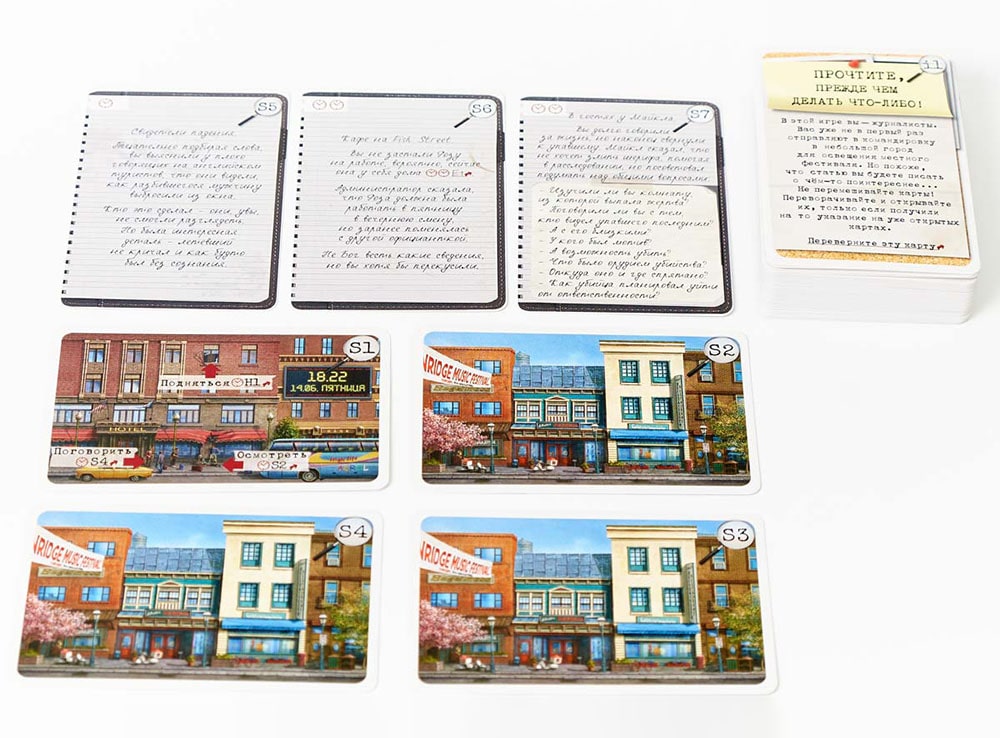 S5
Свидетели падения.
Тщательно подбирая слова,
вы выяснили у плохо
говорящих на английском
туристов, что они видели,
как разбившегося мужчину
выбросили из окна.
Кто это сделал – они, увы,
не смогли разглядеть.
Но была интересная
деталь – летевший
не кричал и как будто
был без сознания.
S6
Кафе на Fish Street
Вы не застали Розу
на работе, вероятно, сейчас
она у себя дома E1
Администратор сказала,
что Роза должна была
работать в пятницу
в вечернюю смену,
но заранее поменялась
с другой официанткой.
Не Бог весть какие сведения,
но вы хотя бы перекусили.
S7
В гостях у Майкла.
Вы долго говорили
за жизнь, но наконец свернули
к упавшему. Майкл сказал, что
не хочет злить шерифа, помогая
в расследовании, но посоветовал
подумать над общими вопросами.
Изучили ли вы комнату,
из которой выпала жертва?
Поговорили ли вы с тем,
кто видел упавшего последним?
– А с его близкими?
– У кого был мотив?
– А возможность убить?
– Что было орудием убийства?
– Откуда оно и где спрятано?
– Как убийца планировал уйти
от ответственности?
i1
ПРОЧТИТЕ,
ПРЕЖДЕ ЧЕМ
ДЕЛАТЬ ЧТО-ЛИБО!
В этой игре вы — журналисты.
Вас уже не в первый раз
отправляют в командировку
в небольшой город
для освещения местного
фестиваля. Но похоже,
что статью вы будете писать
о чём-то поинтереснее...
Не перемешивайте карты!
Переворачивайте и открывайте
их, только если получили
на то указание на уже открытых
картах.
Переверните эту карту
S1
Подняться H1
18.22
14.06. ПЯТНИЦА
HOTEL
Поговорить
S4
Осмотреть
S2
S2
NRIDGE MUSIC FESTIVAL
S4
NRIDGE MUSIC FESTIVAL
S3
NRIDGE MUSIC FESTIVAL